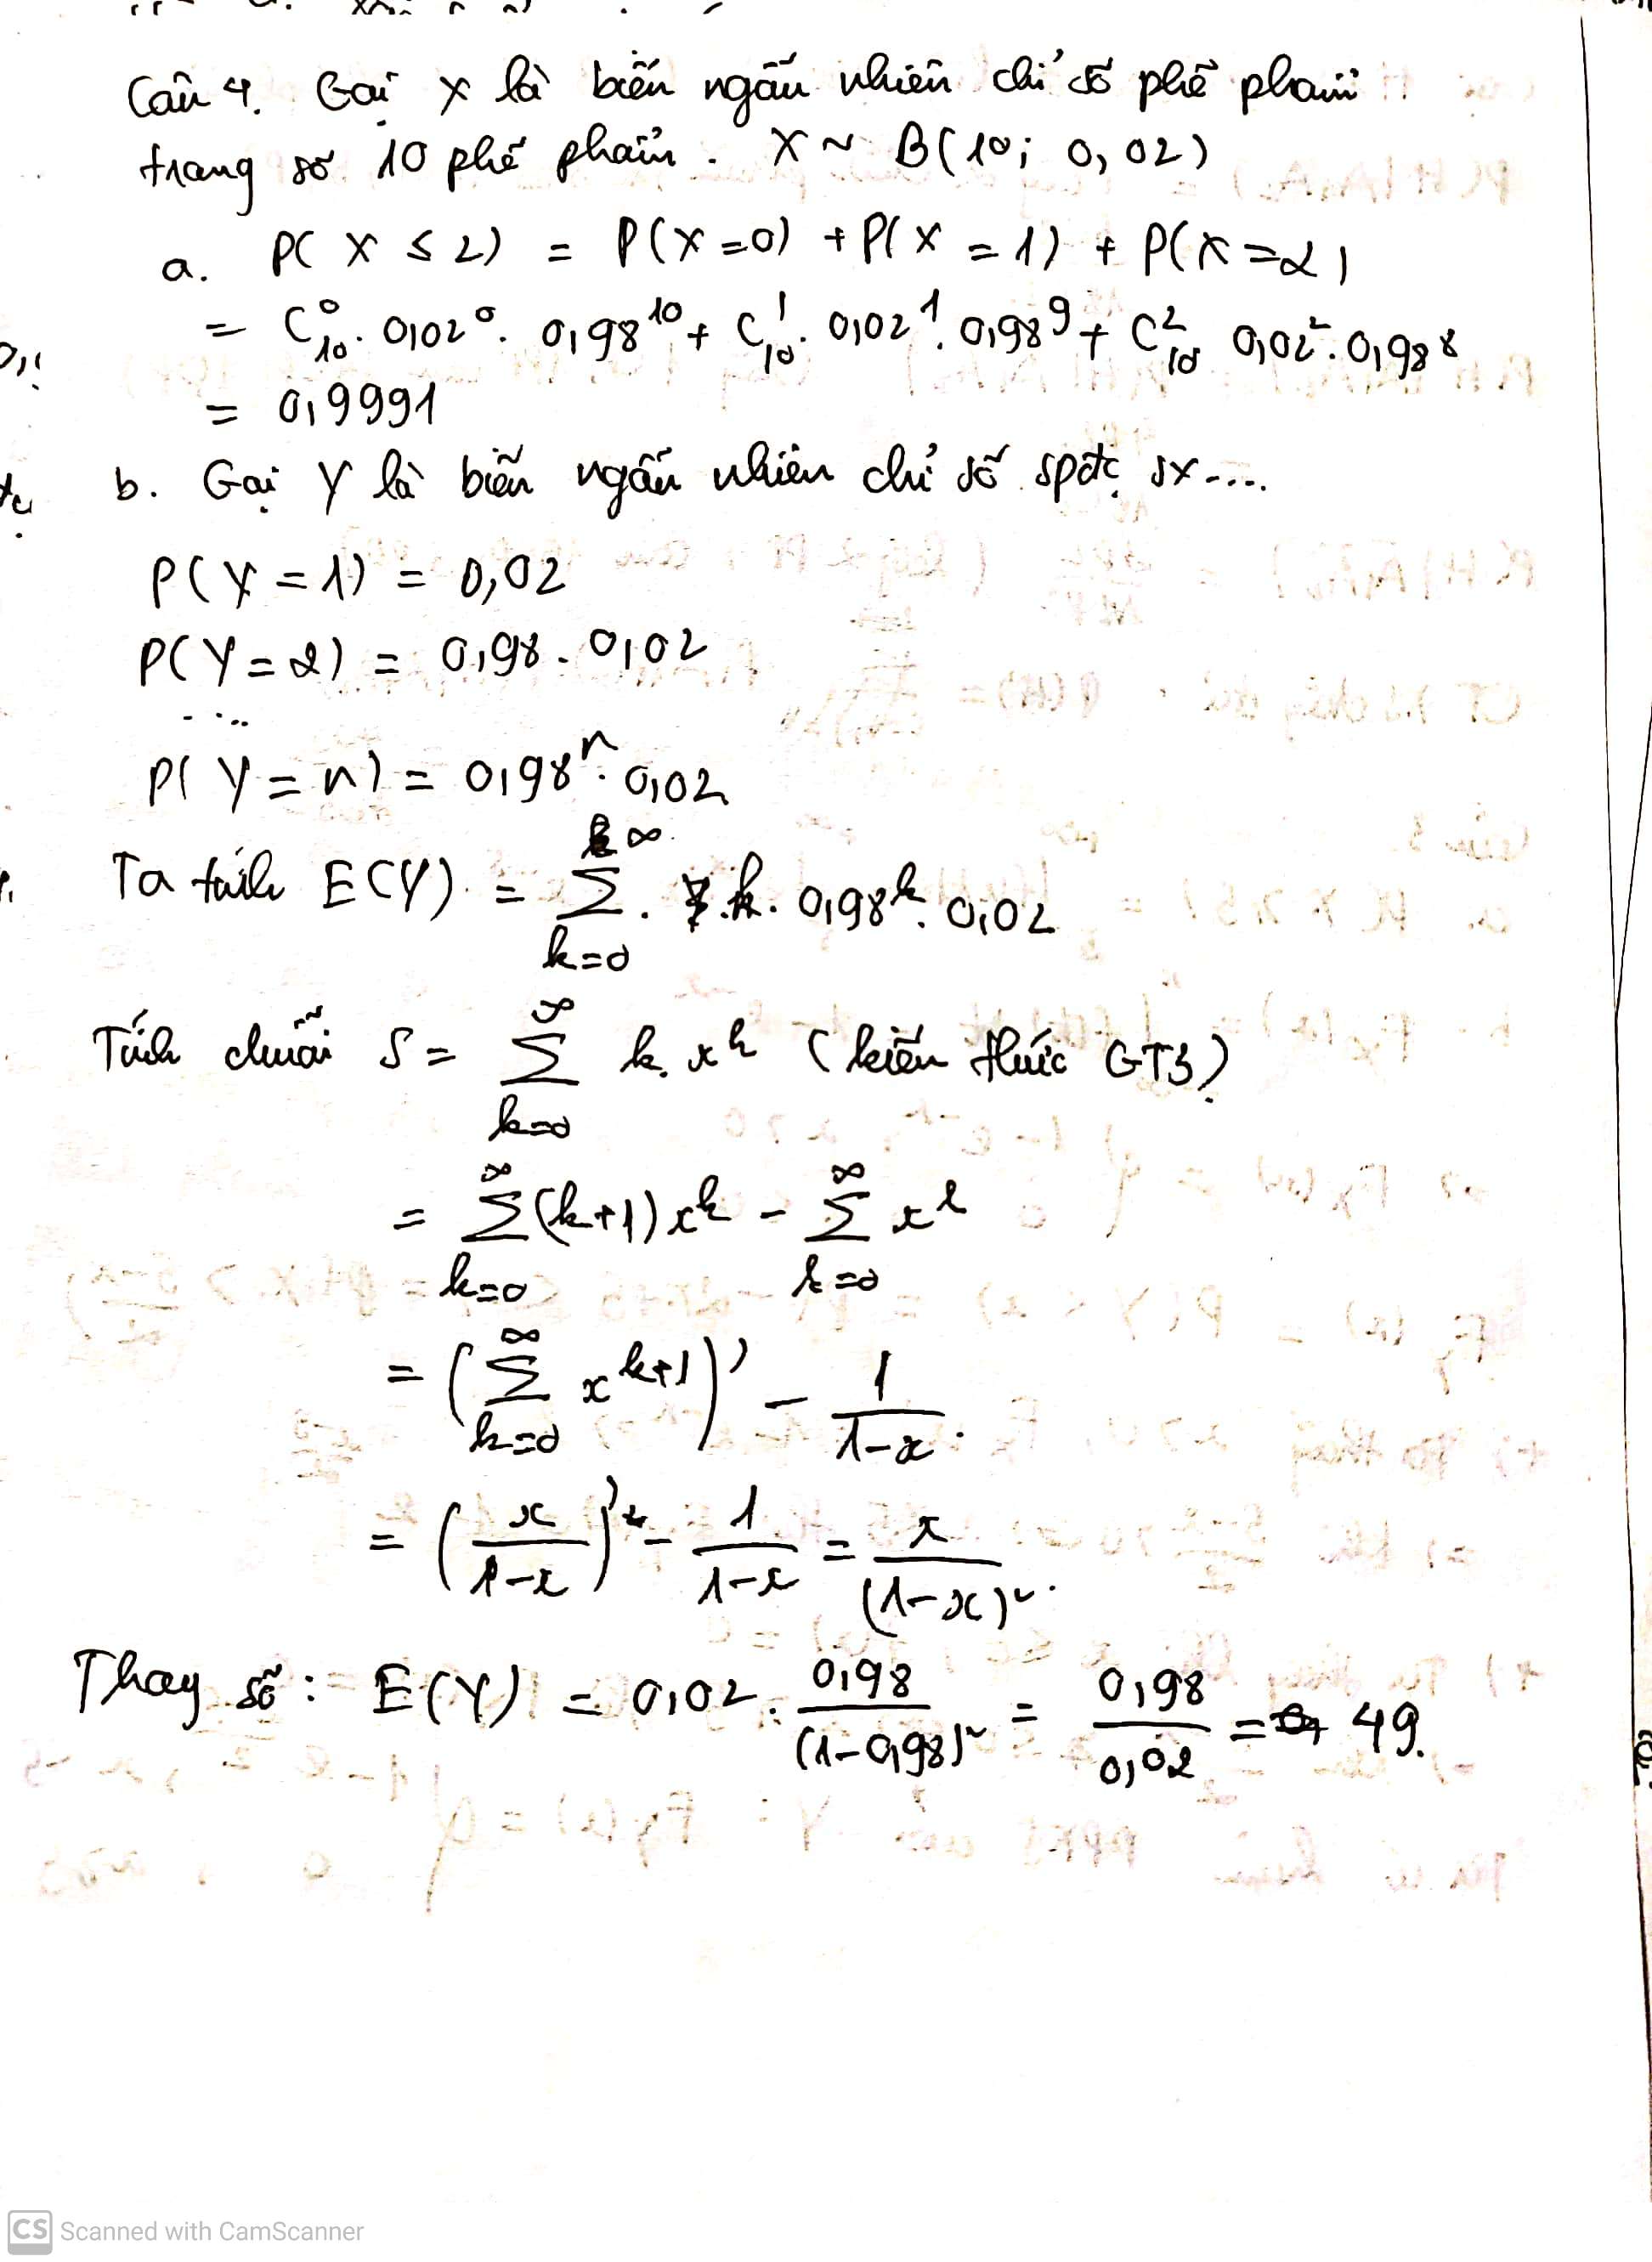 Câu 4. Gọi X là biến ngẫu nhiên chỉ số phế phẩm
trong số 10 phế phẩm. X ~ B(10; 0,02)
a. P(X ≤ 2) = P(X=0) + P(X=1) + P(X=2)
= C⁰₁₀. 0,02⁰. 0,98¹⁰ + C¹₁₀. 0,02¹. 0,98⁹ + C²₁₀ 0,02². 0,98⁸
= 0,9991
b. Gọi Y là biến ngẫu nhiên chỉ số spđtc sx....
P(Y=1) = 0,02
P(Y=2) = 0,98. 0,02
....
P(Y=n) = 0,98ⁿ. 0,02
Ta tính E(Y) = ∞ Σ k=0 . k. 0,98ᵏ. 0,02
Tính chuỗi S = ∞ Σ k=0 k. xᵏ (kiến thức GT3)
= ∞ Σ k=0 (k+1) xᵏ - ∞ Σ k=0 xᵏ
= (∞ Σ k=0 xᵏ⁺¹)' - 1/(1-x).
= (x/(1-x))' - 1/(1-x) = x/(1-x)².
Thay số: E(Y) = 0,02. 0,98/(1-0,98)² = 0,98/0,02 = 49.
CS Scanned with CamScanner